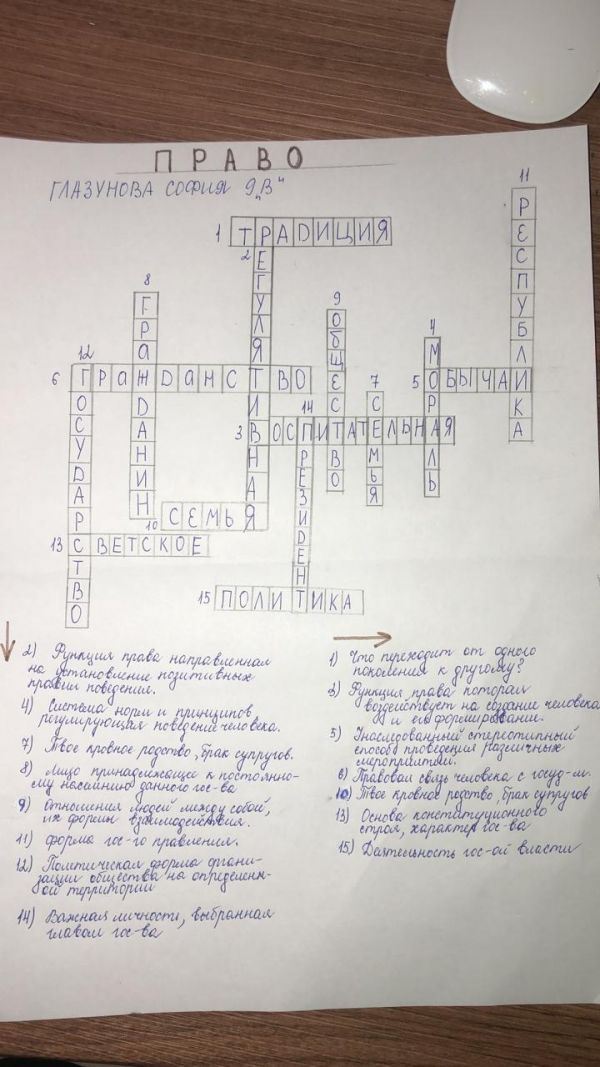 ПРАВО
ГЛАЗУНОВА СОФИЯ 9„В"
11
РЕСПУБЛИКА
1 ТРАДИЦИЯ
2
РЕГУЛЯТИВНАЯ
8
ГРАЖДАНИН
9
ОБЩЕСТВО
4
МОРАЛЬ
12
ГОСУДАРСТВО
6 ГРАЖДАНСТВО
7
СЕМЬЯ
5 ОБЫЧАИ
14
ПРЕЗИДЕНТ
3 ВОСПИТАТЕЛЬНАЯ
10 СЕМЬЯ
13 СВЕТСКОЕ
15 ПОЛИТИКА
2) Функция права направленная
на установление позитивных
правил поведения.
4) Система норм и принципов
регулирующих поведение человека.
7) Твое кровное родство, брак супругов.
8) Лицо принадлежащее к постоянно-
му населению данного гос-ва
9) Отношения людей между собой,
их формы взаимодействия.
11) Форма гос-го правления.
12) Политическая форма органи-
зации общества на определенн-
ой территории
14) Важная личность, выбранная
главой гос-ва
1) Что переходит от одного
поколения к другому?
3) Функция права которая
воздействует на создание человека
и его формирование.
5) Унаследованный стереотипный
способ проведения различных
мероприятий.
6) Правовая связь человека с госуд-м.
10) Твое кровное родство, брак супругов
13) Основа конституционного
строя, характер гос-ва
15) Деятельность гос-ой власти